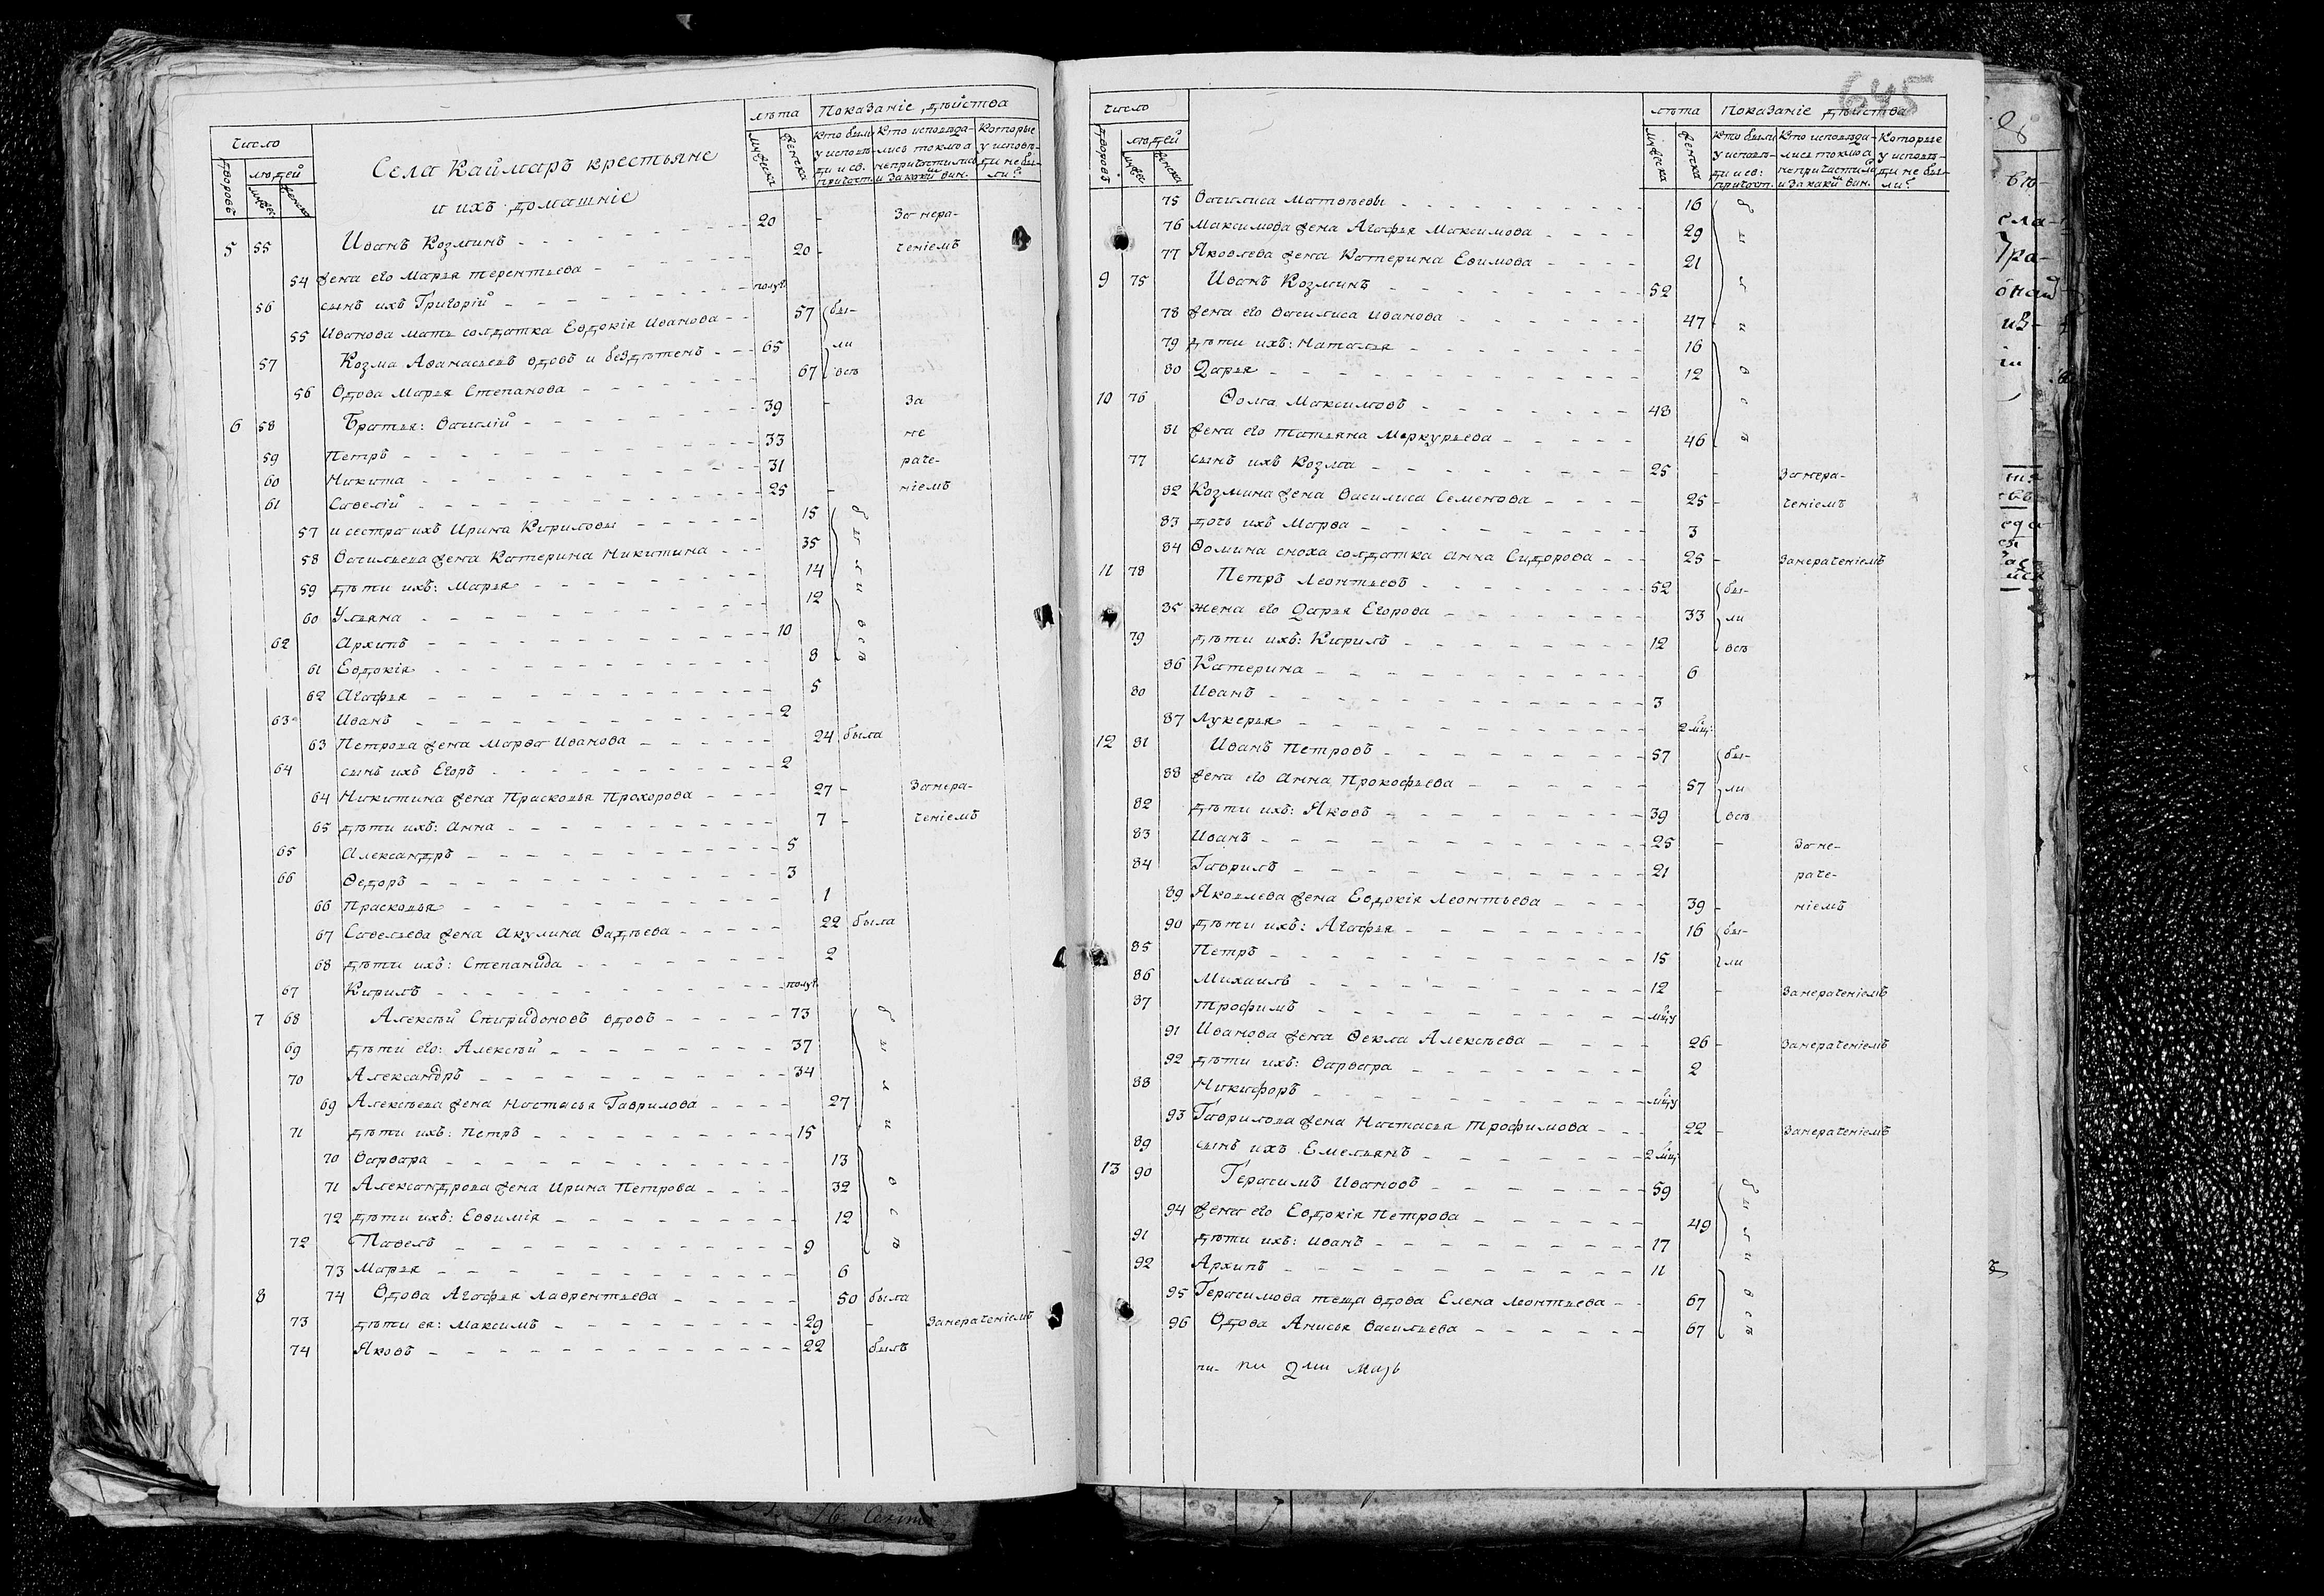 число
дворовъ
людей
мужеска
женска
Села Каймаръ крестьяне
и ихъ домашніе
лѣта
мужеска
женска
Показаніе дѣйства
Кто были у исповѣди и св. причаст.
Кто исповѣдались токмо а непричастились и за какой вин.
Которые у исповѣди не были?
5 55 Иванъ Козминъ 20 - Занера-
54 жена его Марья Терентьева 20 - ченіемъ
56 сынъ ихъ Григорій полуг
55 Иванова мать солдатка Евдокія Иванова 57 бы-
57 Козма Аѳанасьевъ вдовъ и бездѣтенъ 65 ли
56 Вдова Марья Степанова 67 всѣ
6 58 Братья: Василій 39 - За
59 Петръ 33 не
60 Никита 31 раче-
61 Савелій 25 - ніемъ
57 и сестра ихъ Ирина Кириловы 15
58 Васильева жена Катерина Никитина 35
59 дѣти ихъ: Марья 14
60 Ульяна 12
62 Архипъ 10
61 Евдокія 8
62 Агафья 5
63 Иванъ 2
63 Петрова жена Марѳа Иванова 24 была
64 сынъ ихъ Егоръ 2
64 Никитина жена Прасковья Прохорова 27 - Занера-
65 дѣти ихъ: Анна 7 - ченіемъ
65 Александръ 5
66 Ѳедоръ 3
66 Прасковья 1
67 Савельева жена Акулина Ѳадѣева 22 была
68 дѣти ихъ: Степанида 2
67 Кирилъ полуг.
7 68 Алексѣй Спиридоновъ вдовъ 73
69 дѣти его: Алексѣй 37
70 Александръ 34
69 Алексѣева жена Настасья Гаврилова 27
71 дѣти ихъ: Петръ 15
70 Варвара 13
71 Александрова жена Ирина Петрова 32
72 дѣти ихъ: Евѳимія 12
72 Павелъ 9
73 Марья 6
8 74 Вдова Агафья Лаврентьева 50 была
73 дѣти ея: Максимъ 29 - Занераченіемъ
74 Яковъ 22 былъ
645
число
дворовъ
людей
мужеск
женска
лѣта
мужеска
женска
Показаніе дѣйства
Кто были у исповѣди и св: причаст.
Кто исповѣдались токмо а непричастилис и за какой вин.
Которые у исповѣди не были?
75 Василиса Матвѣевы 16
76 Максимова жена Агафья Максимова 29
77 Яковлева жена Катерина Евимова 21
9 75 Иванъ Козминъ 52
78 жена его Василиса Иванова 47
79 дѣти ихъ: Наталья 16
80 Дарья 12
10 76 Ѳома Максимовъ 48
81 жена его Татьяна Меркурьева 46
77 сынъ ихъ Козма 25 - Занера-
82 Козмина жена Василиса Семенова 25 - ченіемъ
83 дочь ихъ Марѳа 3
84 Ѳомина сноха солдатка Анна Сидорова 25 - Занераченіемъ
11 78 Петръ Леонтьевъ 52 бы-
85 жена его Дарья Егорова 33 ли
79 дѣти ихъ: Кирилъ 12 всѣ
86 Катерина 6
80 Иванъ 3
87 Лукерья 2 мц:
12 81 Иванъ Петровъ 57 бы-
88 жена его Анна Прокофьева 57 ли
82 дѣти ихъ: Яковъ 39 всѣ
83 Иванъ 25 - За не-
84 Гаврилъ 21 раче-
89 Яковлева жена Евдокія Леонтьева 39 - ніемъ
90 дѣти ихъ: Агафья 16 бы-
85 Петръ 15 ли
86 Михаилъ 12 - Занераченіемъ
87 Трофимъ мцу
91 Иванова жена Ѳекла Алексѣева 26 - Занераченіемъ
92 дѣти ихъ: Варвара 2
88 Никифоръ мцу
93 Гаврилова жена Настасья Трофимова 22 - Занераченіемъ
89 сынъ ихъ Емельянъ 2 мц
13 90 Герасимъ Ивановъ 59
94 жена его Евдокія Петрова 49
91 дѣти ихъ: Иванъ 17
92 Архипъ 11
95 Герасимова теща вдова Елена Леонтьева 67
96 Вдова Анисья Васильева 67